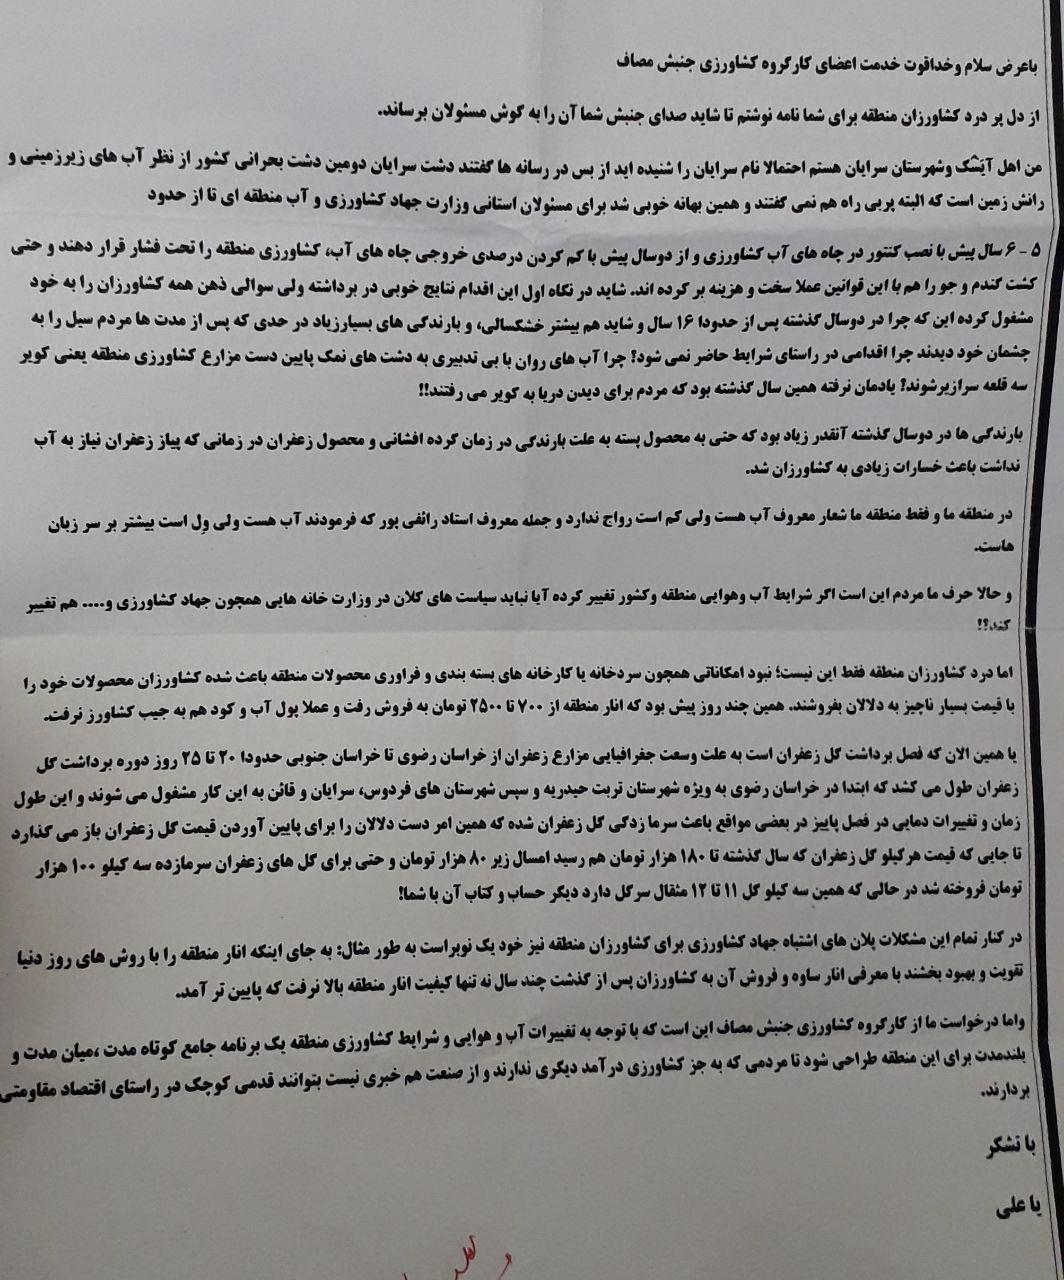 باعرض سلام وخداقوت خدمت اعضای کارگروه کشاورزی جنبش مصاف
از دل پر درد کشاورزان منطقه برای شما نامه نوشتم تا شاید صدای جنبش شما آن را به گوش مسئولان برساند.
من اهل آیَسْک وشهرستان سرایان هستم احتمالا نام سرایان را شنیده اید از بس در رسانه ها گفتند دشت سرایان دومین دشت بحرانی کشور از نظر آب های زیرزمینی و
رانش زمین است که البته پربی راه هم نمی گفتند و همین بهانه خوبی شد برای مسئولان استانی وزارت جهاد کشاورزی و آب منطقه ای تا از حدود
۵ - ۶ سال پیش با نصب کنتور در چاه های آب کشاورزی و از دوسال پیش با کم کردن درصدی خروجی چاه های آب، کشاورزی منطقه را تحت فشار قرار دهند و حتی
کشت گندم و جو را هم با این قوانین عملا سخت و هزینه بر کرده اند. شاید در نگاه اول این اقدام نتایج خوبی در برداشته ولی سوالی ذهن همه کشاورزان را به خود
مشغول کرده این که چرا در دوسال گذشته پس از حدودا ۱۶ سال و شاید هم بیشتر خشکسالی، و بارندگی های بسیارزیاد در حدی که پس از مدت ها مردم سیل را به
چشمان خود دیدند چرا اقدامی در راستای شرایط حاضر نمی شود؟ چرا آب های روان با بی تدبیری به دشت های نمک پایین دست مزارع کشاورزی منطقه یعنی کویر
سه قلعه سرازیرشوند؟ یادمان نرفته همین سال گذشته بود که مردم برای دیدن دریا به کویر می رفتند!!
بارندگی ها در دوسال گذشته آنقدر زیاد بود که حتی به محصول پسته به علت بارندگی در زمان گرده افشانی و محصول زعفران در زمانی که پیاز زعفران نیاز به آب
نداشت باعث خسارات زیادی به کشاورزان شد.
در منطقه ما و فقط منطقه ما شعار معروف آب هست ولی کم است رواج ندارد و جمله معروف استاد رائفی پور که فرمودند آب هست ولی وِل است بیشتر بر سر زبان
هاست.
و حالا حرف ما مردم این است اگر شرایط آب وهوایی منطقه وکشور تغییر کرده آیا نباید سیاست های کلان در وزارت خانه هایی همچون جهاد کشاورزی و.... هم تغییر
کند؟!
اما درد کشاورزان منطقه فقط این نیست؛ نبود امکاناتی همچون سردخانه یا کارخانه های بسته بندی و فراوری محصولات منطقه باعث شده کشاورزان محصولات خود را
با قیمت بسیار ناچیز به دلالان بفروشند. همین چند روز پیش بود که انار منطقه از ۷۰۰ تا ۲۵۰۰ تومان به فروش رفت و عملا پول آب و کود هم به جیب کشاورز نرفت.
یا همین الان که فصل برداشت گل زعفران است به علت وسعت جغرافیایی مزارع زعفران از خراسان رضوی تا خراسان جنوبی حدودا ۲۰ تا ۲۵ روز دوره برداشت گل
زعفران طول می کشد که ابتدا در خراسان رضوی به ویژه شهرستان تربت حیدریه و سپس شهرستان های فردوس، سرایان و قائن به این کار مشغول می شوند و این طول
زمان و تغییرات دمایی در فصل پاییز در بعضی مواقع باعث سرما زدگی گل زعفران شده که همین امر دست دلالان را برای پایین آوردن قیمت گل زعفران باز می گذارد
تا جایی که قیمت هرکیلو گل زعفران که سال گذشته تا ۱۸۰ هزار تومان هم رسید امسال زیر ۸۰ هزار تومان و حتی برای گل های زعفران سرمازده سه کیلو ۱۰۰ هزار
تومان فروخته شد در حالی که همین سه کیلو گل ۱۱ تا ۱۲ مثقال سرگل دارد دیگر حساب و کتاب آن با شما!
در کنار تمام این مشکلات پلان های اشتباه جهاد کشاورزی برای کشاورزان منطقه نیز خود یک نوبراست به طور مثال: به جای اینکه انار منطقه را با روش های روز دنیا
تقویت و بهبود بخشند با معرفی انار ساوه و فروش آن به کشاورزان پس از گذشت چند سال نه تنها کیفیت انار منطقه بالا نرفت که پایین تر آمد.
واما درخواست ما از کارگروه کشاورزی جنبش مصاف این است که با توجه به تغییرات آب و هوایی و شرایط کشاورزی منطقه یک برنامه جامع کوتاه مدت ،میان مدت و
بلندمدت برای این منطقه طراحی شود تا مردمی که به جز کشاورزی درآمد دیگری ندارند و از صنعت هم خبری نیست بتوانند قدمی کوچک در راستای اقتصاد مقاومتی
بردارند.
با تشکر
یا علی